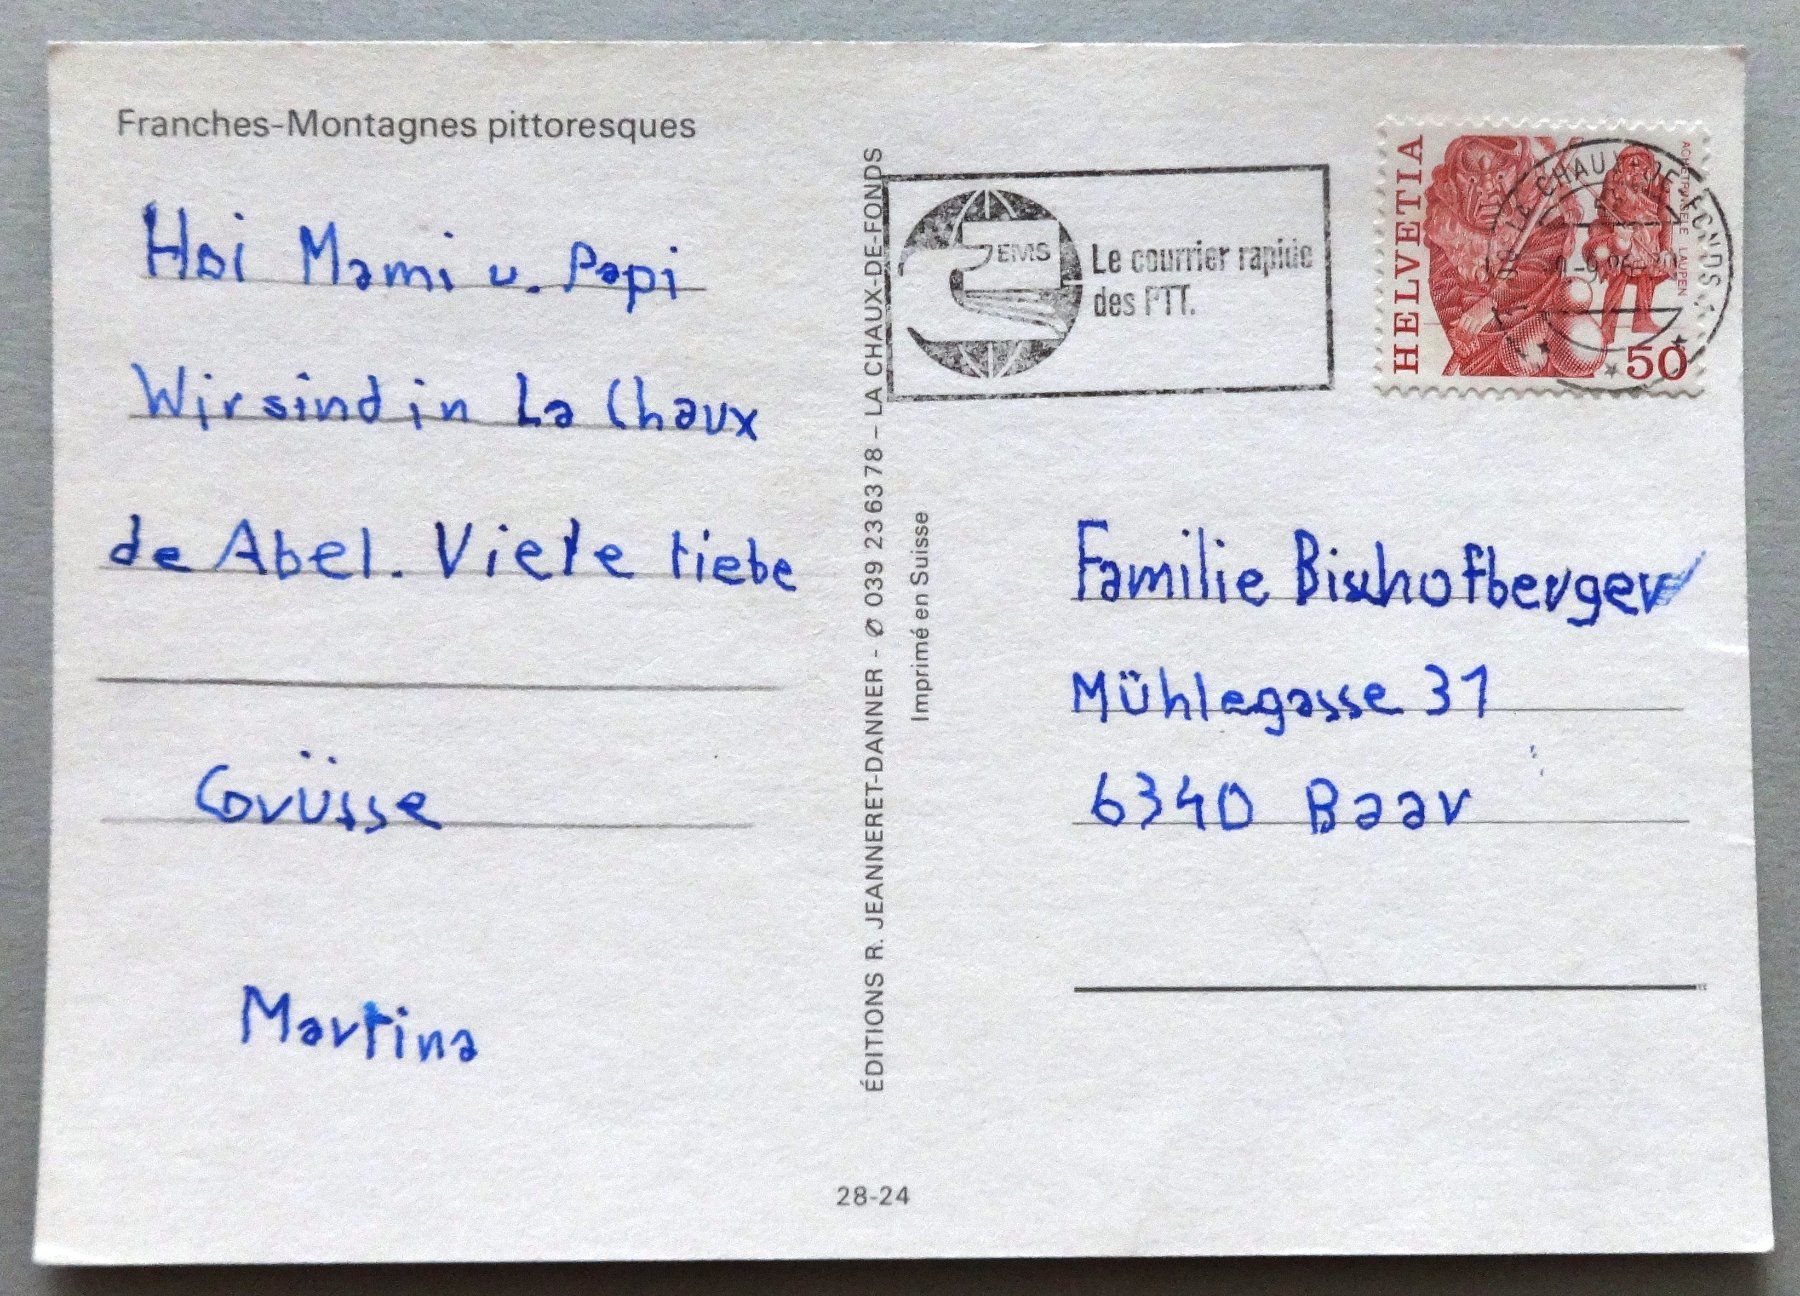 Franches-Montagnes pittoresques
Hoi Mami u. Papi
Wir sind in La Chaux
de Abel. Viele liebe
Grüsse
Martina
28-24
ÉDITIONS R. JEANNERET-DANNER - ✆ 039 23 63 78 – LA CHAUX-DE-FONDS
Imprimé en Suisse
EMS
Le courrier rapide
des PTT.
HELVETIA
LAUPEN
50
LA CHAUX-DE-FONDS 1
Familie Bischofberger
Mühlegasse 31
6340 Baar